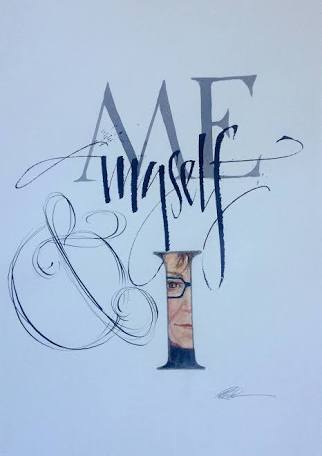 ME
myself
& I